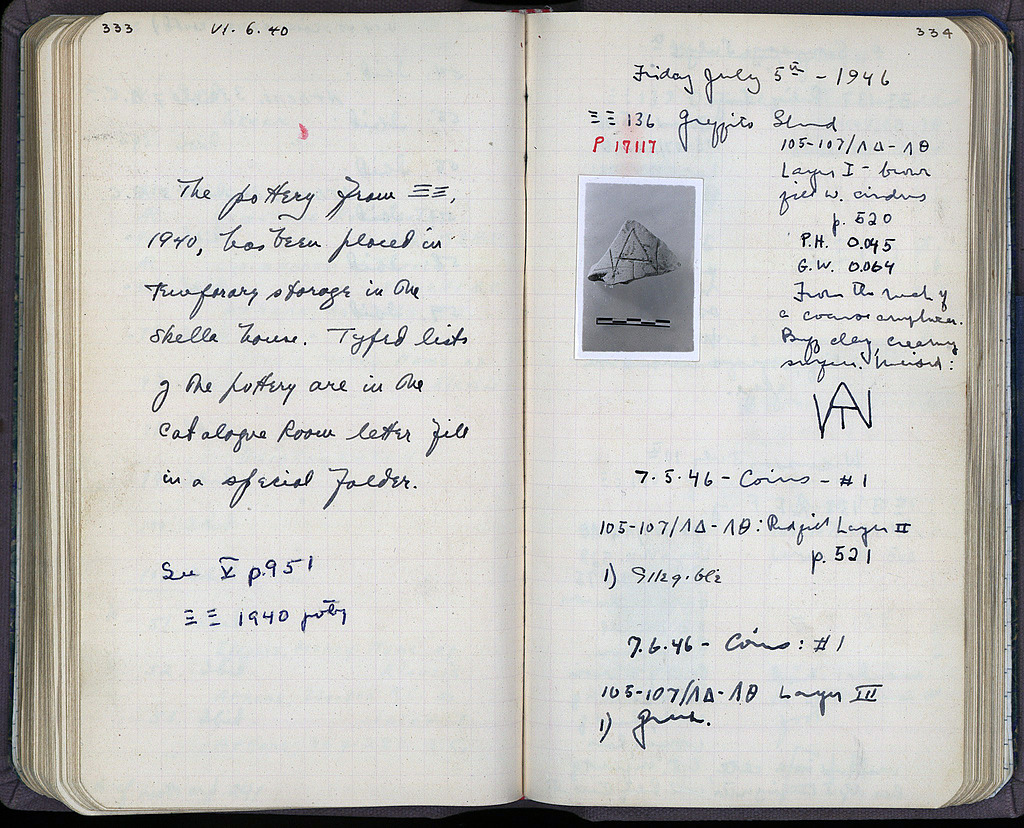 333
VI. 6. 40
The pottery from ΞΞ,
1940, has been placed in
temporary storage in the
Skella house. Typed lists
of the pottery are in the
Catalogue Room letter file
in a special folder.
See V p. 951
ΞΞ 1940 pottery
334
Friday July 5th - 1946
ΞΞ 136 Graffito Sherd
P 17117
105-107/ΛΔ-ΛΘ
Layer I - brown
fill w. cinders
p. 520
P.H. 0.045
G.W. 0.064
From the neck of
a coarse amphora.
Buff clay, creamy
surface. Incised:
7.5.46 - Coins - #1
105-107/ΛΔ-ΛΘ: Red fill Layer II
p. 521
1) Illegible
7.6.46 - Coins: #1
105-107/ΛΔ-ΛΘ Layer III
1) Greek.